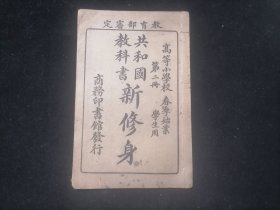 教育部審定
高等小學校 春季始業 學生用
第二冊
共和國
教科書
新修身
商務印書館發行